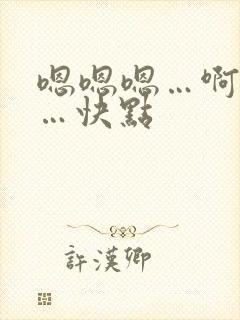 嗯嗯嗯…啊
…快點
許漢卿